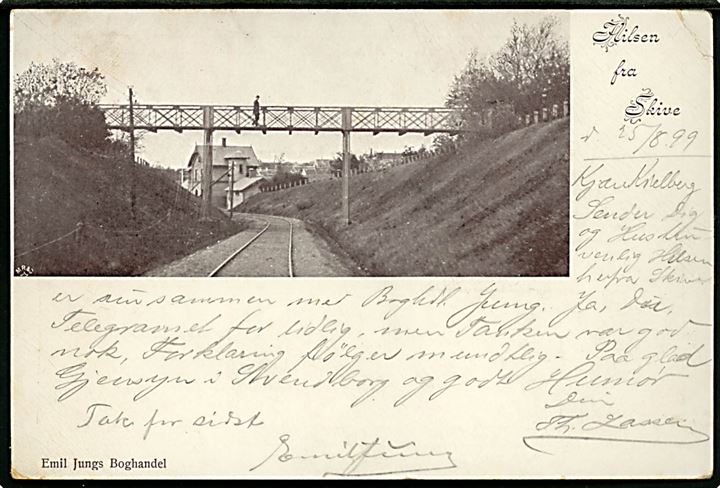 Hilsen
fra
Skive
d 25/8.99
Kjære
Sender Dig
og Hustru
venlig Hilsen
herfra Skive
er sin sammen med Boghdl. Jung. Ja, Du,
Telegramet for tidlig, men Tanken var god
nok, Forklaring følger mundtlig. Paa glad
Gjensyn i Svendborg og godt Humør
Din
Th. Lassen
Tak for sidst
Emil Jung
Emil Jungs Boghandel